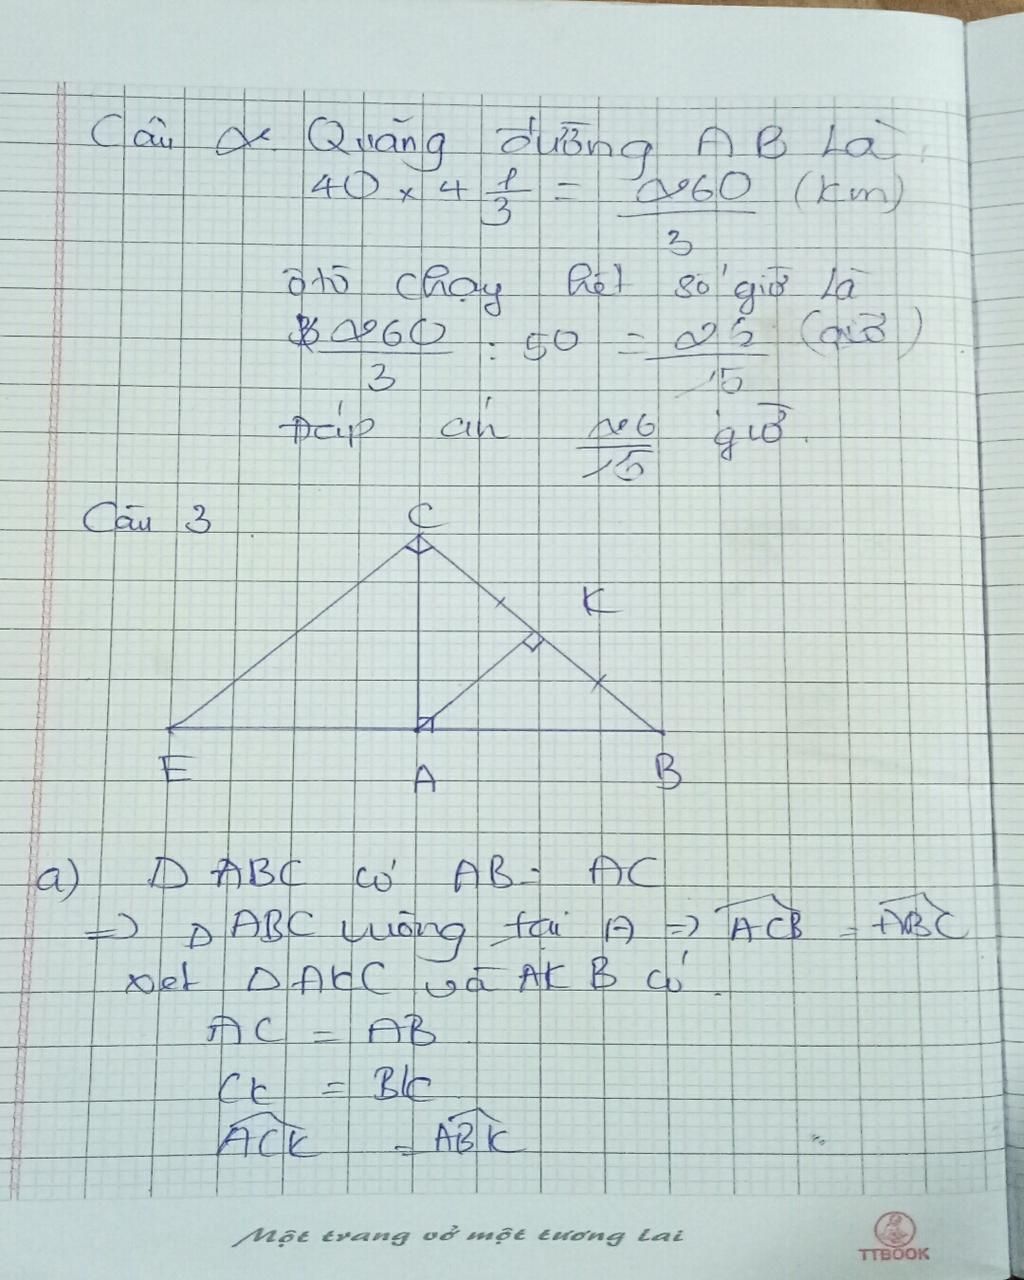 Câu 2 Quãng đường AB là
40 × 4 1/3 = 260/3 (km)
ôtô chạy hết số giờ là
260/3 : 50 = 26/15 (giờ)
Đáp án 26/15 giờ.
Câu 3
C
K
E A B
a) Δ ABC có AB = AC
=> Δ ABC vuông tại A => ACB = ABC
xét Δ AKC và AKB có
AC = AB
CK = BK
ACK = ABK
Một trang vở một tương lai
TTBOOK